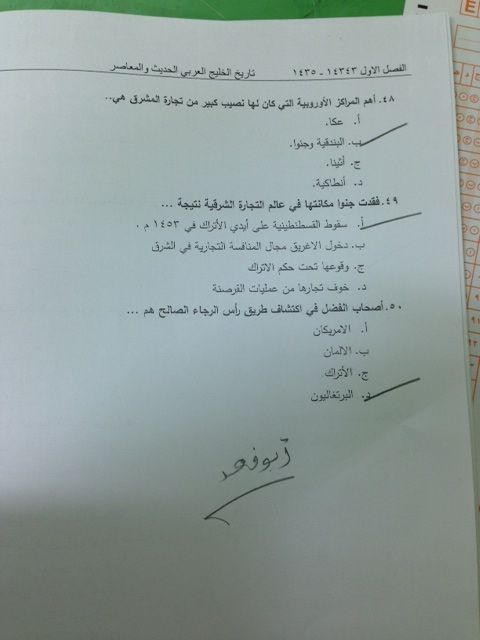 تاريخ الخليج العربي الحديث والمعاصر الفصل الاول ١٤٣٤٣ - ١٤٣٥
٤٨. أهم المراكز الأوروبية التي كان لها نصيب كبير من تجارة المشرق هي..
أ. عكا.
ب. البندقية وجنوا.
ج. أثينا.
د. أنطاكية.
٤٩. فقدت جنوا مكانتها في عالم التجارة الشرقية نتيجة ...
أ. سقوط القسطنطينية على أيدي الأتراك في ١٤٥٣ م .
ب. دخول الاغريق مجال المنافسة التجارية في الشرق
ج. وقوعها تحت حكم الاتراك
د. خوف تجارها من عمليات القرصنة
٥٠. أصحاب الفضل في اكتشاف طريق رأس الرجاء الصالح هم ...
أ. الامريكان
ب. الالمان
ج. الأتراك
د. البرتغاليون
أبو فهد